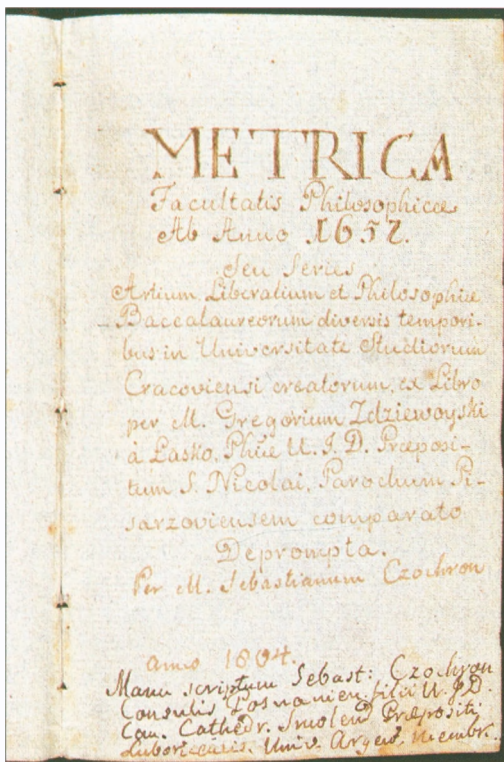 METRICA
Facultatis Philosophicæ
Ab Anno 1652.
Seu Series
Artium Liberalium et Philosophiæ
Baccalaureorum diversis tempori-
bus in Universitate Studiorum
Cracoviensi creatorum, ex Libro
per M. Gregorium Zdziewoyski
à Łasko, Phiæ U. J. D. Præposi-
tum S. Nicolai, Parochum Pi-
sarzoviensem comparato
Deprompta.
Per M. Sebastianum Czochron
anno 1804.
Manu scriptum Sebast: Czochron
Consulis Posnanien filii U. J. D.
Can. Cathedr. Smolens Præpositi
Univ. Membr.